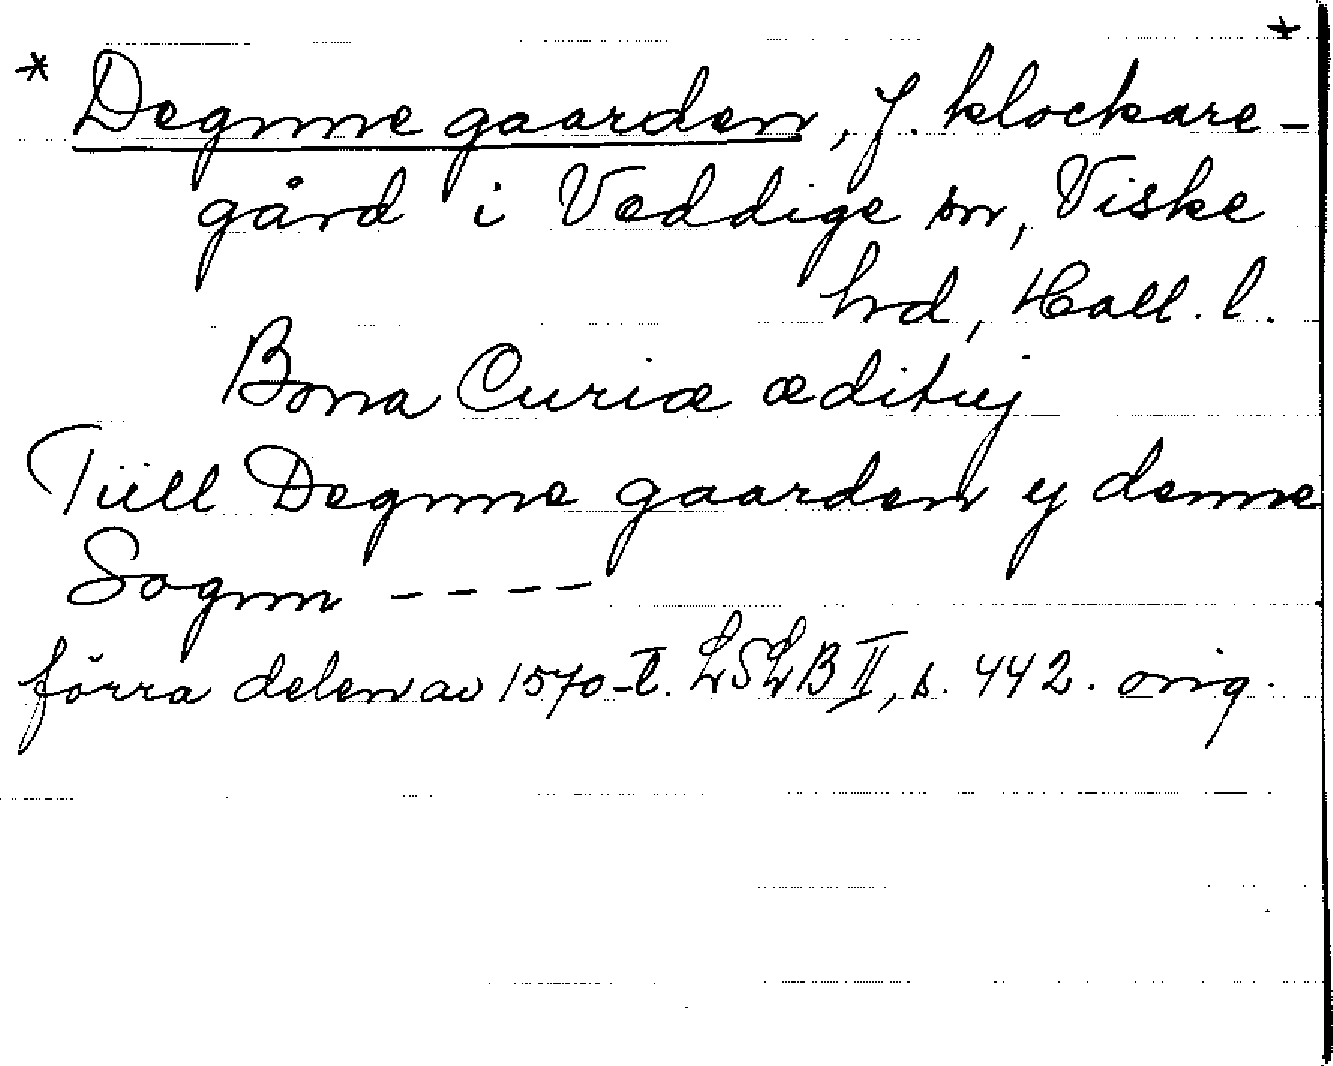 * Degnne gaarden, f. klockare- *
gård i Veddige sn, Viske
hrd, Hall. l.
Bona Curiæ ædituj
Tiill Degnne gaarden y denne
Sognn ----
förra delen av 1570-t. LSLB II, s. 442. orig.